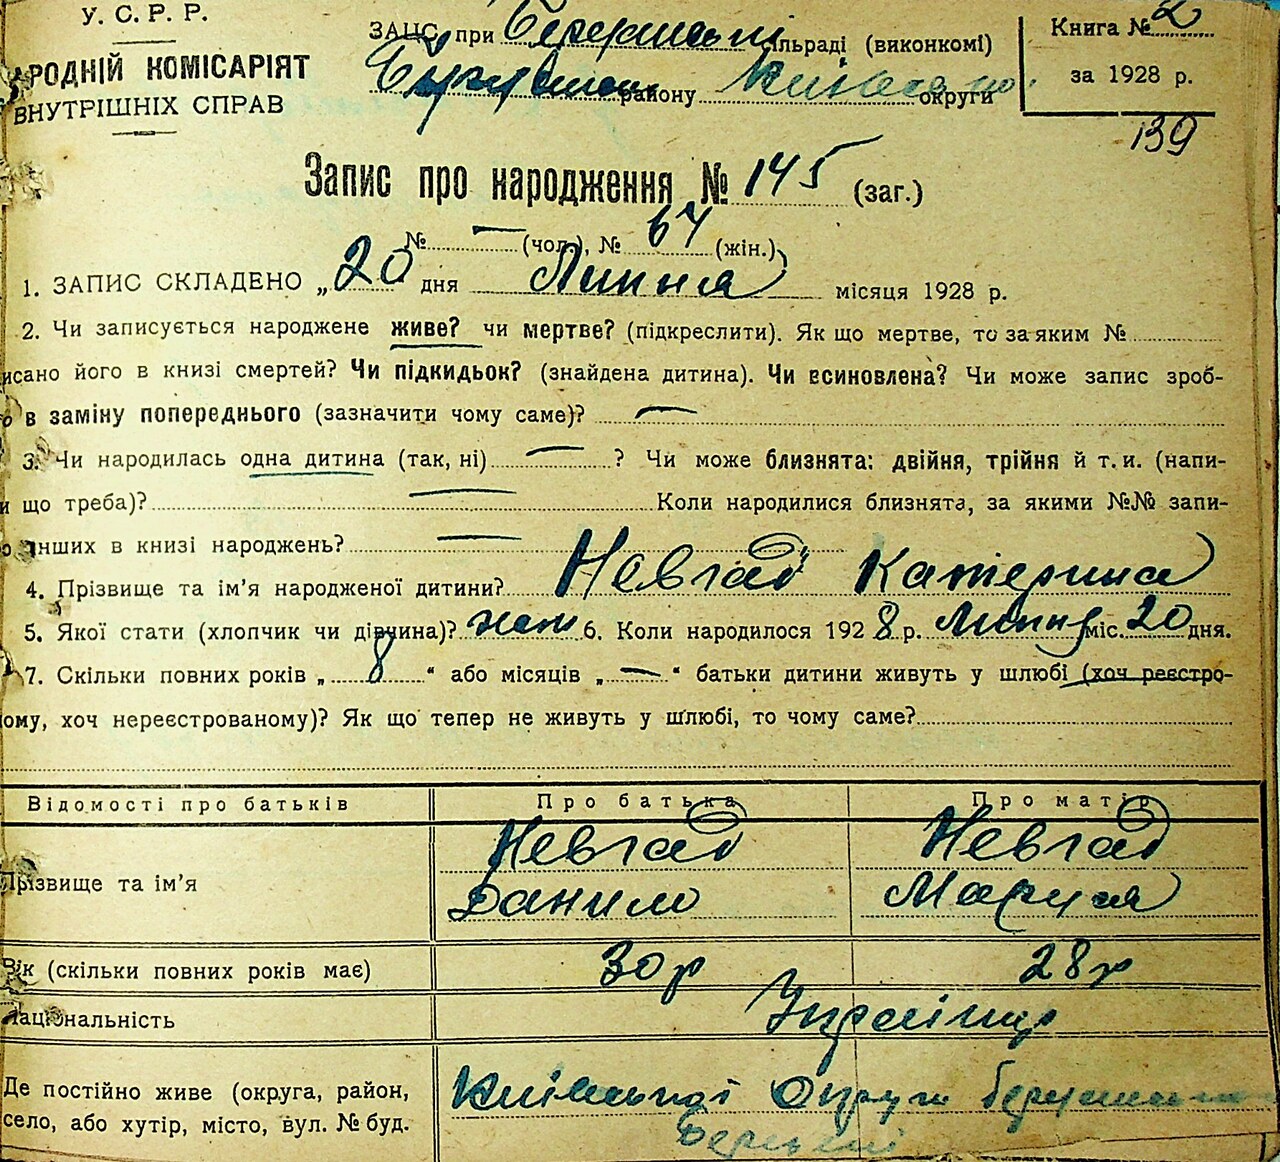 У. С. Р. Р.
РОДНІЙ КОМІСАРІЯТ
ВНУТРІШНІХ СПРАВ
ЗАЦС при сільраді (виконкомі)
району округи
Книга № 2
за 1928 р.
139
Запис про народження № 145 (заг.)
№ — (чол.), № 64 (жін.)
1. ЗАПИС СКЛАДЕНО „20 дня Липня місяця 1928 р.
2. Чи записується народжене живе? чи мертве? (підкреслити). Як що мертве, то за яким №
исано його в книзі смертей? Чи підкидьок? (знайдена дитина). Чи всиновлена? Чи може запис зроб-
о в заміну попереднього (зазначити чому саме)? —
3. Чи народилась одна дитина (так, ні) — ? Чи може близнята: двійня, трійня й т. и. (напи-
и що треба)? — Коли народилися близнята, за якими №№ запи-
о інших в книзі народжень? —
4. Прізвище та ім'я народженої дитини? Невгад Катерина
5. Якої стати (хлопчик чи дівчина)? жін 6. Коли народилося 1928 р. Липня міс. 20 дня.
7. Скільки повних років „ 8 “ або місяців „ — “ батьки дитини живуть у шлюбі (хоч реєстро-
ому, хоч нереєстрованому)? Як що тепер не живуть у шлюбі, то чому саме?
Відомості про батьків Про батька Про матір
Прізвище та ім'я Невгад Невгад
Данило Маруся
Вік (скільки повних років має) 30 р 28 р
Національність Українці
Де постійно живе (округа, район, Київської Округи
село, або хутір, місто, вул. № буд.